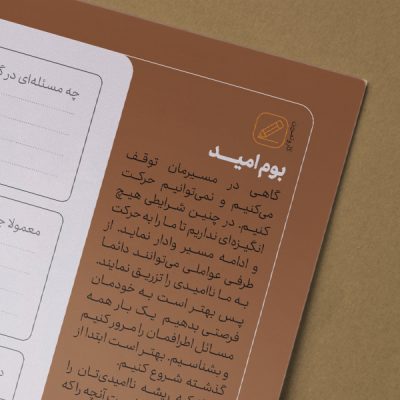 کاربرگ تمرین
بوم امید
گاهی در مسیرمان توقف
می‌کنیم و نمی‌توانیم حرکت
کنیم. در چنین شرایطی هیچ
انگیزه‌ای نداریم تا ما را به حرکت
و ادامه مسیر وادار نماید. از
طرفی عواملی می‌توانند دائما
به ما ناامیدی را تزریق نمایند.
پس بهتر است به خودمان
فرصتی بدهیم یک بار همه
مسائل اطرافمان را مرور کنیم
و بشناسیم. بهتر است ابتدا از
گذشته شروع کنیم.
ریشه ناامیدی‌تان را
آنچه را که
چه مسئله‌ای در
معمولا